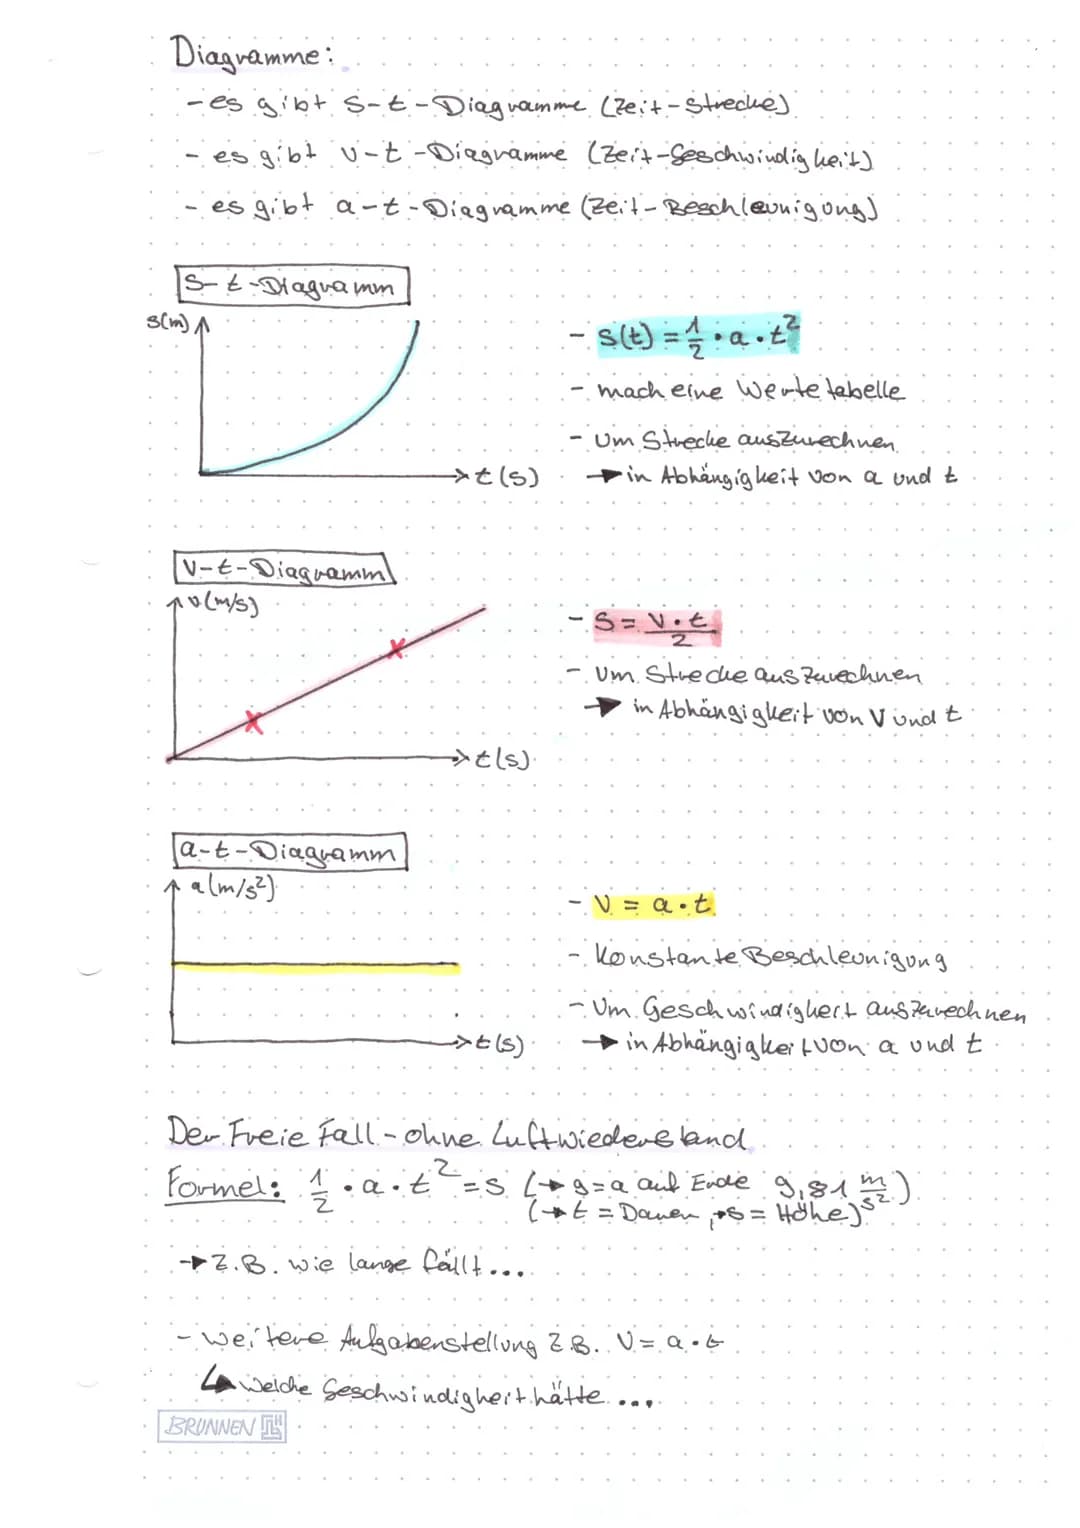 Diagramme:
- es gibt s-t-Diagramme (Zeit-Strecke)
- es gibt v-t-Diagramme (Zeit-Geschwindigkeit)
- es gibt a-t-Diagramme (Zeit-Beschleunigung)
s-t-Diagramm
s(m)
- s(t) = 1/2 · a · t²
- mach eine Wertetabelle
- um Strecke auszurechnen
→ in Abhängigkeit von a und t
t(s)
v-t-Diagramm
v(m/s)
- s = v·t/2
- um Strecke auszurechnen
→ in Abhängigkeit von v und t
t(s)
a-t-Diagramm
a(m/s²)
- v = a·t
- Konstante Beschleunigung
- Um Geschwindigkeit auszurechnen
→ in Abhängigkeit von a und t
t(s)
Der Freie Fall - ohne Luftwiederstand
Formel: 1/2 · a · t² = s (→ g=a auf Erde 9,81 m/s²)
(→ t = Dauer, → s = Höhe)
→ z.B. wie lange fällt...
- weitere Aufgabenstellung z.B. v = a·t
↳ Welche Geschwindigkeit hätte ...
BRUNNEN